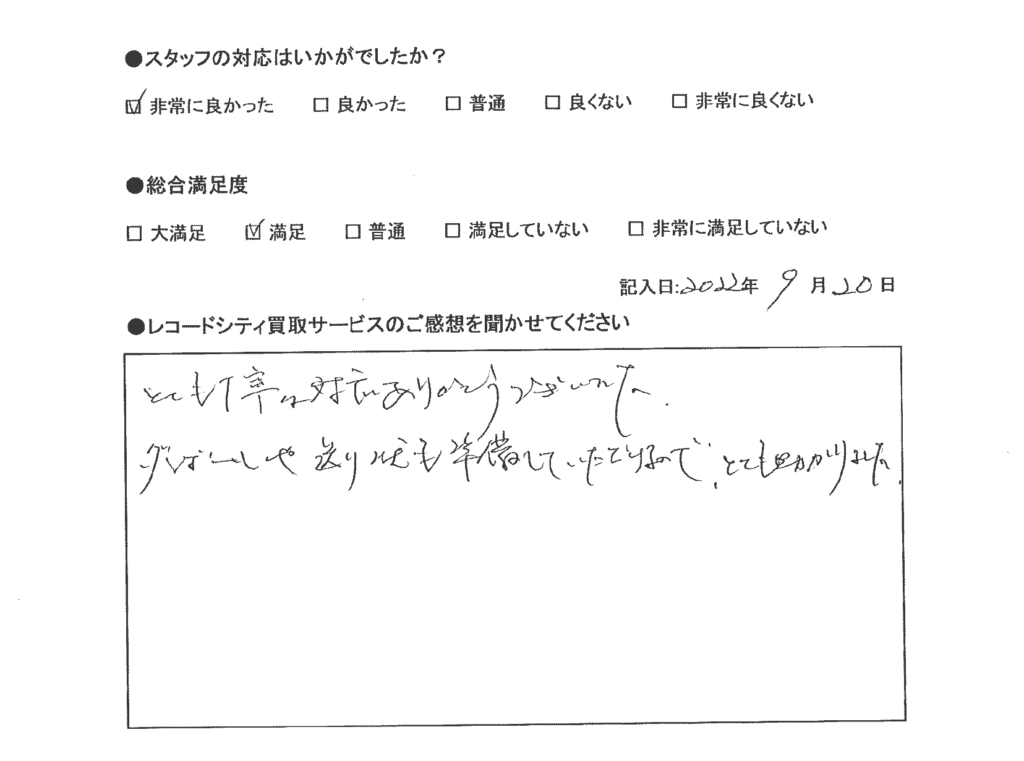 ●スタッフの対応はいかがでしたか？
☑ 非常に良かった □ 良かった □ 普通 □ 良くない □ 非常に良くない
●総合満足度
□ 大満足 ☑ 満足 □ 普通 □ 満足していない □ 非常に満足していない
記入日:2022年 9月20日
●レコードシティ買取サービスのご感想を聞かせてください
とても丁寧な対応ありがとうございました.
ダンボールや送り状も準備していただけるので、とても助かりました.